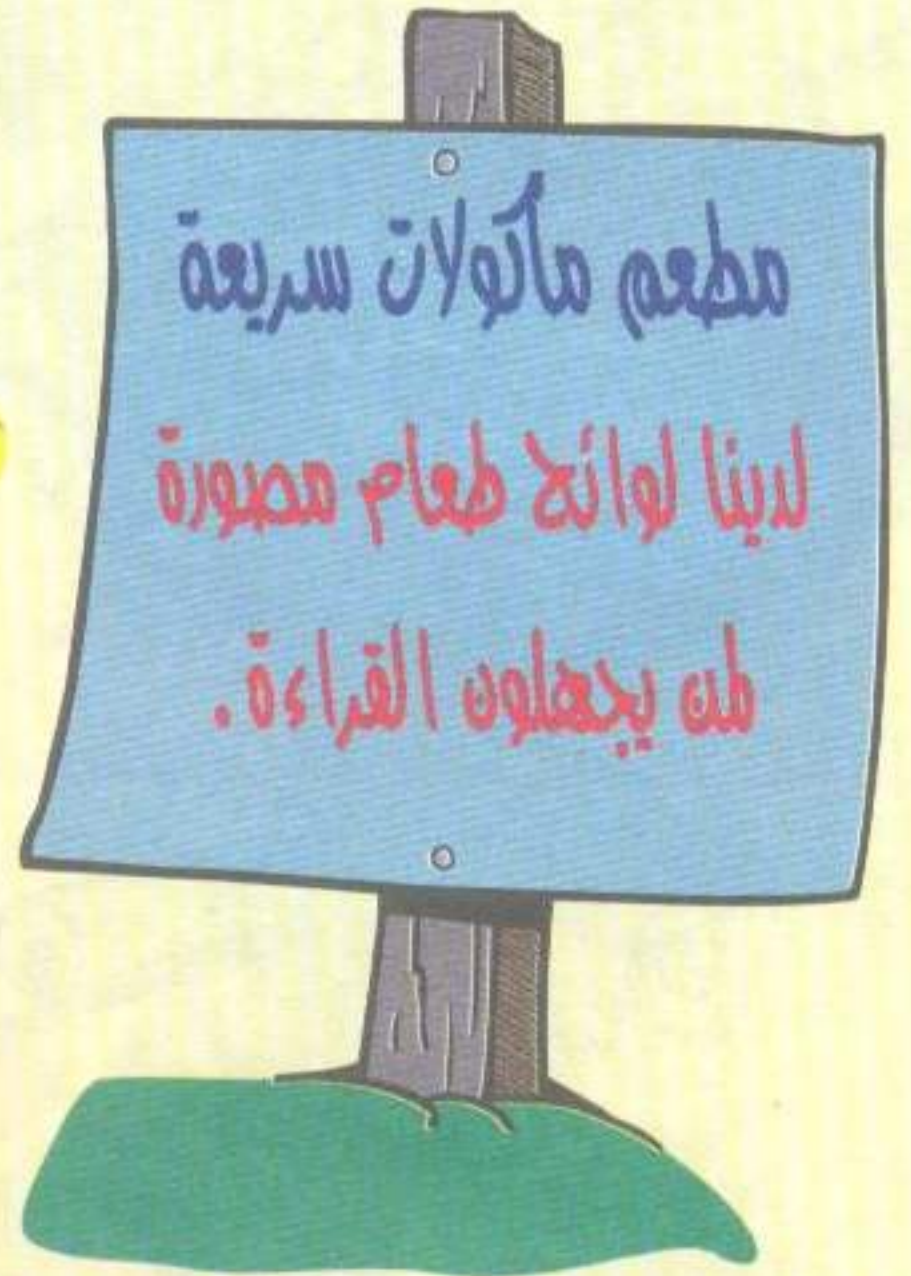 مطعم مأكولات سريعة
لدينا لوائح طعام مصورة
لمن يجهلون القراءة.